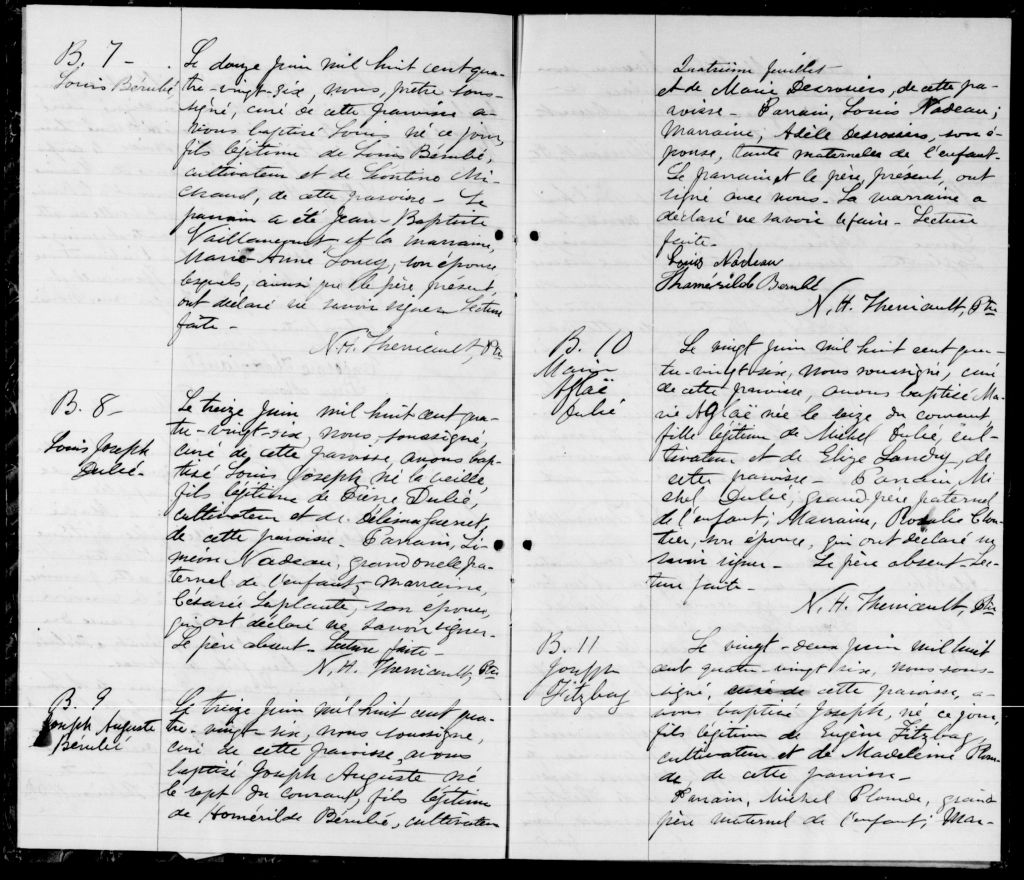 B. 7 -
Louis Bérubé
Le douze Juin mil huit cent qua-
tre-vingt-six, nous, prêtre sous-
signé, curé de cette paroisse a-
vons baptisé Louis né ce jour,
fils légitime de Louis Bérubé,
cultivateur et de Léontine Mi-
chaud, de cette paroisse - Le
parrain a été Jean-Baptiste
Vaillancourt et la marraine,
Marie-Anne Soucy, son épouse
lesquels, ainsi que le père présent,
ont déclaré ne savoir signer Lecture
faite -
N. H. Theriault, Ptre
B. 8 -
Louis Joseph
Dubé -
Le treize Juin mil huit cent qua-
tre-vingt-six, nous, soussigné,
curé de cette paroisse, avons bap-
tisé Louis Joseph né la veille,
fils légitime de Pierre Dubé,
cultivateur et de Délima Guerret,
de cette paroisse - Parrain, Si-
méon Nadeau, grand oncle pa-
ternel de l'enfant; marraine,
Césarée Laplante, son épouse,
qui ont déclaré ne savoir signer -
Le père absent - Lecture faite -
N. H. Theriault, Ptre
B. 9
Joseph Auguste
Bérubé
Le treize Juin mil huit cent qua-
tre-vingt-six, nous soussigné,
curé de cette paroisse, avons
baptisé Joseph Auguste né
le sept du courant, fils légitime
de Homérilde Bérubé, cultivateur
Quatrième feuillet
et de Marie Desrosiers, de cette pa-
roisse - Parrain, Louis Nadeau;
marraine, Adèle Desrosiers, son é-
pouse, tante maternelle de l'enfant -
Le parrain et le père, présent, ont
signé avec nous - La marraine a
déclaré ne savoir le faire - Lecture
faite -
Louis Nadeau
Homérilde Berubé
N. H. Theriault, Ptre
B. 10
Marie
Aglaë
Dubé
Le vingt Juin mil huit cent qua-
tre-vingt six, nous soussigné, curé
de cette paroisse, avons baptisé Ma-
rie Aglaë née le seize du courant
fille légitime de Michel Dubé, cul-
tivateur et de Elize Landry, de
cette paroisse - Parrain, Mi-
chel Dubé, grand père paternel
de l'enfant; Marraine, Rosalie Clou-
tier, son épouse, qui ont déclaré ne
savoir signer - Le père absent - Lec-
ture faite -
N. H. Theriault, Ptre
B. 11
Joseph
Fitzbag
Le vingt-deux Juin mil huit
cent quatre-vingt six, nous sous-
signé, curé de cette paroisse, a-
vons baptisé Joseph, né ce jour,
fils légitime de Eugène Fitzbag
cultivateur et de Madeleine Plour-
de de cette paroisse -
Parrain, Michel Plourde, grand
père maternel de l'enfant; Mar-